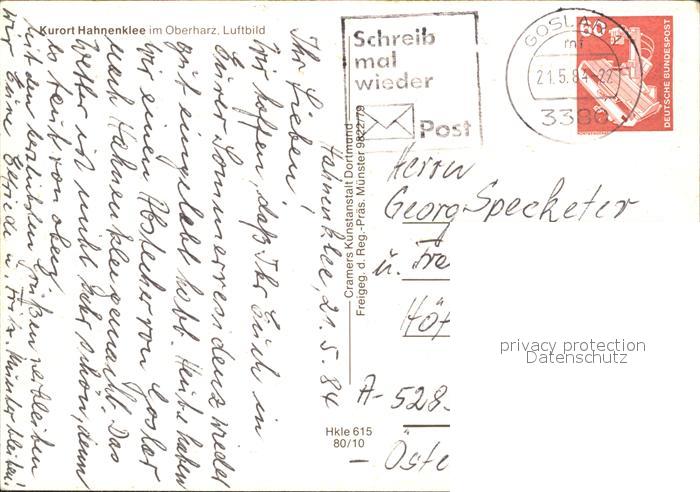 Kurort Hahnenklee im Oberharz, Luftbild
Hahnenklee, 21.5.84
Ihr Lieben!
Wir hoffen, daß Ihr Euch in
Eurer Sommerresidenz wieder
gut eingelebt habt. Heute haben
wir einen Abstecher von Goslar
nach Hahnenklee gemacht. Das
Wetter ist nicht sehr schön, denn
es taut von oben.
Mit den herzlichsten Grüßen verbleiben
Eure Elfriede u. Fritz.
Cramers Kunstanstalt Dortmund
Freigeg. d. Reg.-Präs. Münster 9822/79
Schreib
mal
wieder
Post
GOSLAR
mf
21.5.84-22
3380
60
DEUTSCHE BUNDESPOST
Herrn
Georg Specketer
u. Fre
Höf
A-528
- Öste
privacy protection
Datenschutz
Hkle 615
80/10